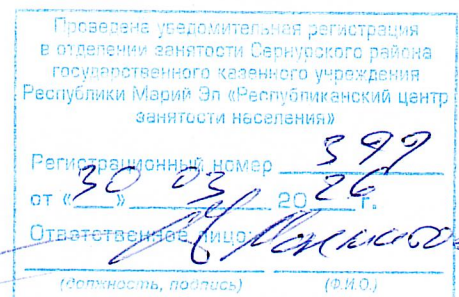 Проведена уведомительная регистрация
в отделении занятости Сернурского района
государственного казенного учреждения
Республики Марий Эл «Республиканский центр
занятости населения»
Регистрационный номер 399
от «30» 03 2026 г.
Ответственное лицо:
(должность, подпись) (Ф.И.О.)